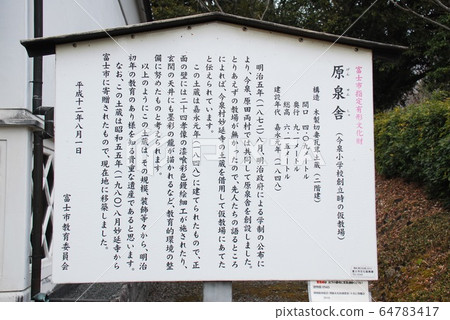 富士市指定有形文化財
原泉舎(今泉小学校創立時の仮教場)
げん せん しゃ
構造 木製切妻瓦葺土蔵(二階建)
間口 四・〇九メートル
奥行 九・一〇メートル
総高 六・一五メートル
建設年代 嘉永元年(一八四八)
明治五年(一八七二)八月、明治政府による学制の公布に
より、今泉、原田両村では共同して原泉舎を創設しました。
とりあえずの教場が無かったので、先人たちの語るところ
によれば、今泉村妙延寺の土蔵を借用して仮教場にあてた
と伝えられています。
この土蔵は嘉永元年(一八四八)に建てられたもので、正
面の壁には二十四孝像の漆喰彩色鏝絵細工が施されたり、
玄関の天井にも墨彩の龍が描かれるなど、教育的環境の整
備に努めたものと考えられます。
以上のようにこの土蔵は、その規模、装飾等々から、明治
初年の教育のあり様を知る貴重な遺産であると思います。
なお、この土蔵は昭和五五年(一九八〇)八月妙延寺から
富士市に寄贈されたもので、現在地に移築しました。
平成十二年八月一日
富士市教育委員会
64783417